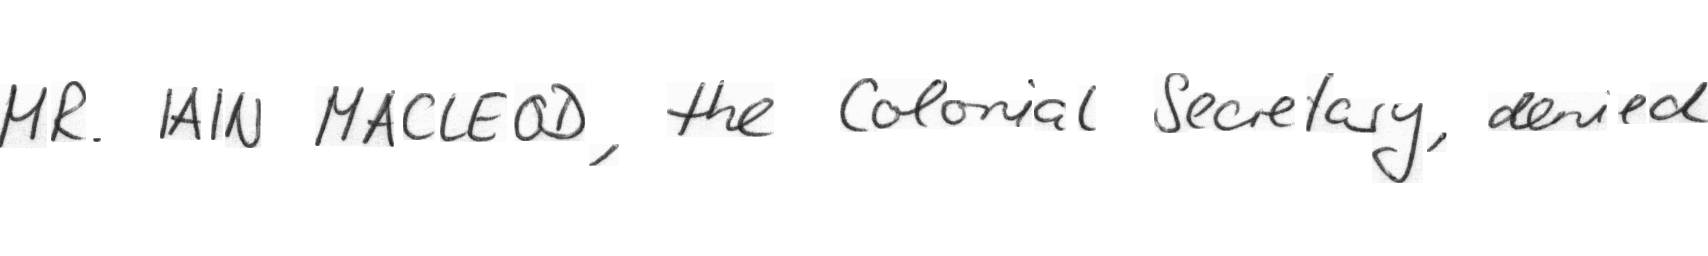 MR. IAIN MACLEOD, the Colonial Secretary, denied